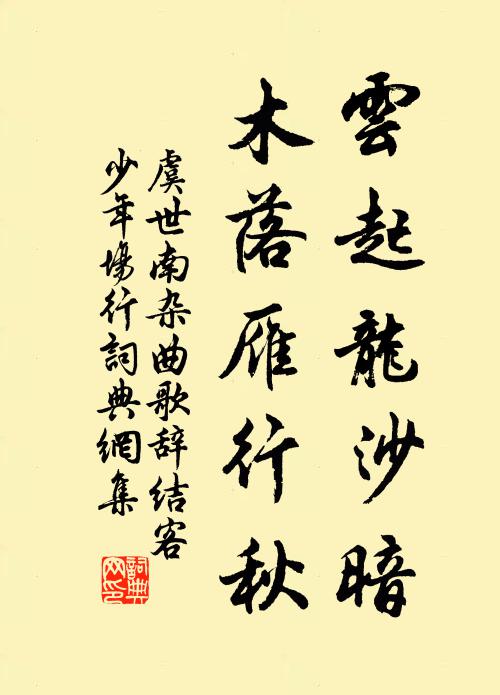 雲起龍沙暗
木落雁行秋
虞世南杂曲歌辞结客
少年場行詞典網集
詞典网印